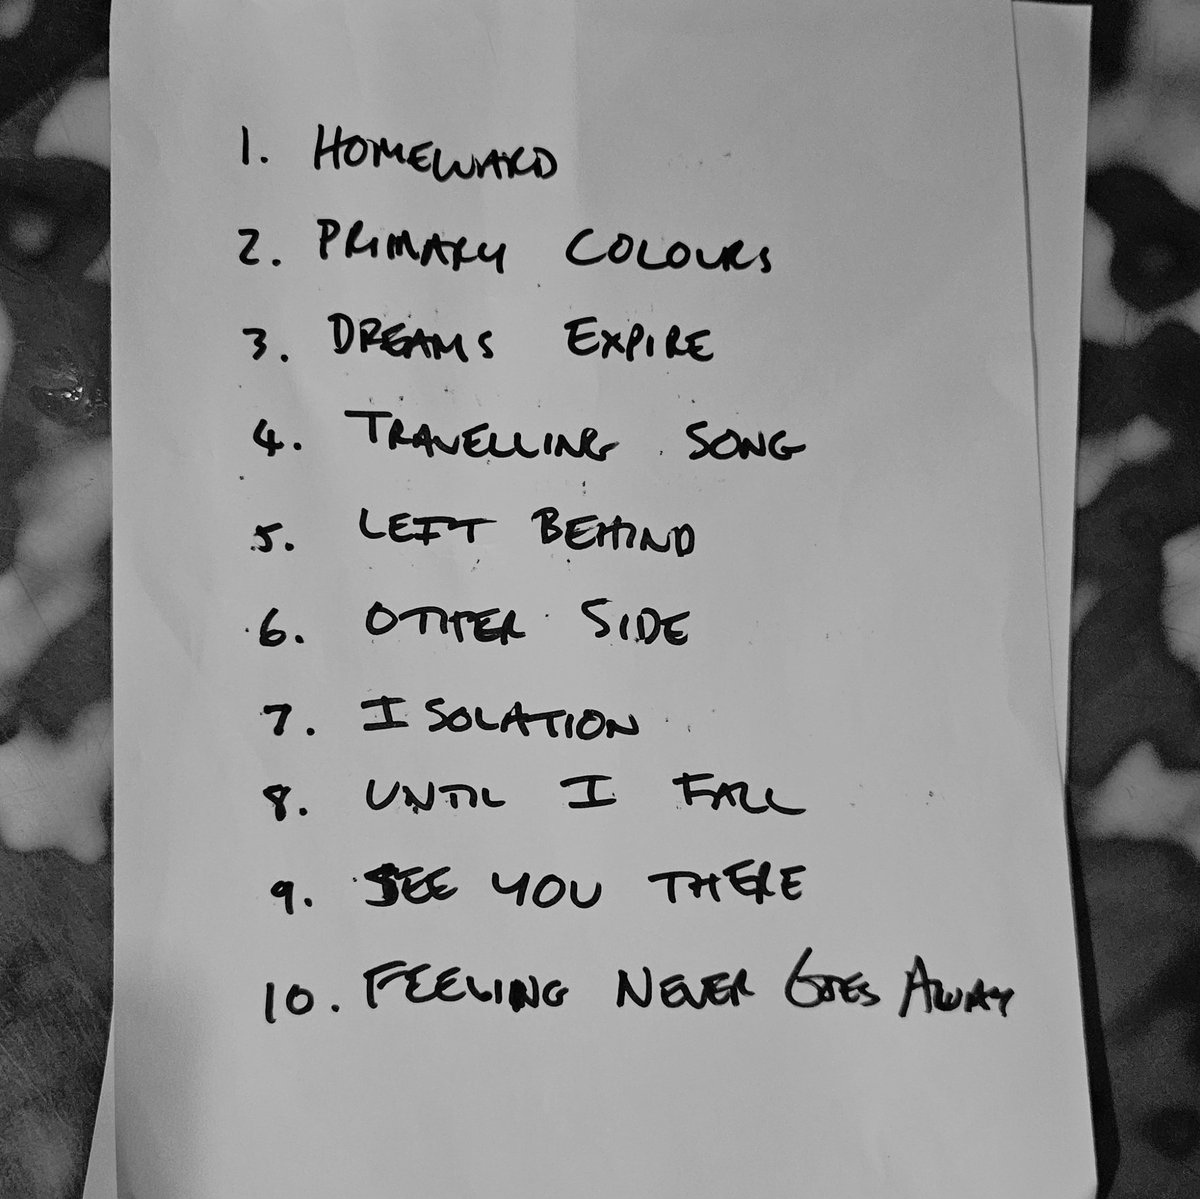 1. HOMEWARD
2. PRIMARY COLOURS
3. DREAMS EXPIRE
4. TRAVELLING SONG
5. LEFT BEHIND
6. OTHER SIDE
7. ISOLATION
8. UNTIL I FALL
9. SEE YOU THERE
10. FEELING NEVER GOES AWAY